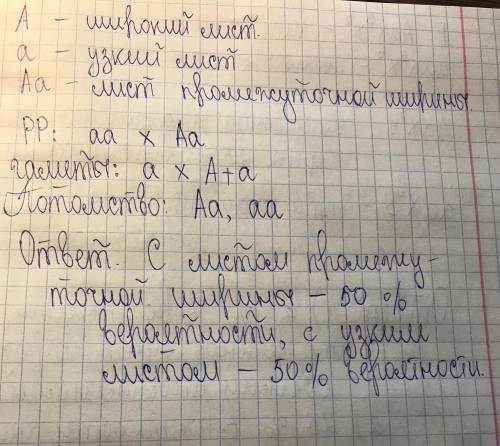 А – широкий лист.
а – узкий лист
Аа – лист промежуточной ширины.
РР: аа х Аа
гаметы: а х А+а
Потомство: Аа, аа
Ответ. С листом промежу-
точной ширины – 50 %
вероятности, с узким
листом – 50% вероятности.